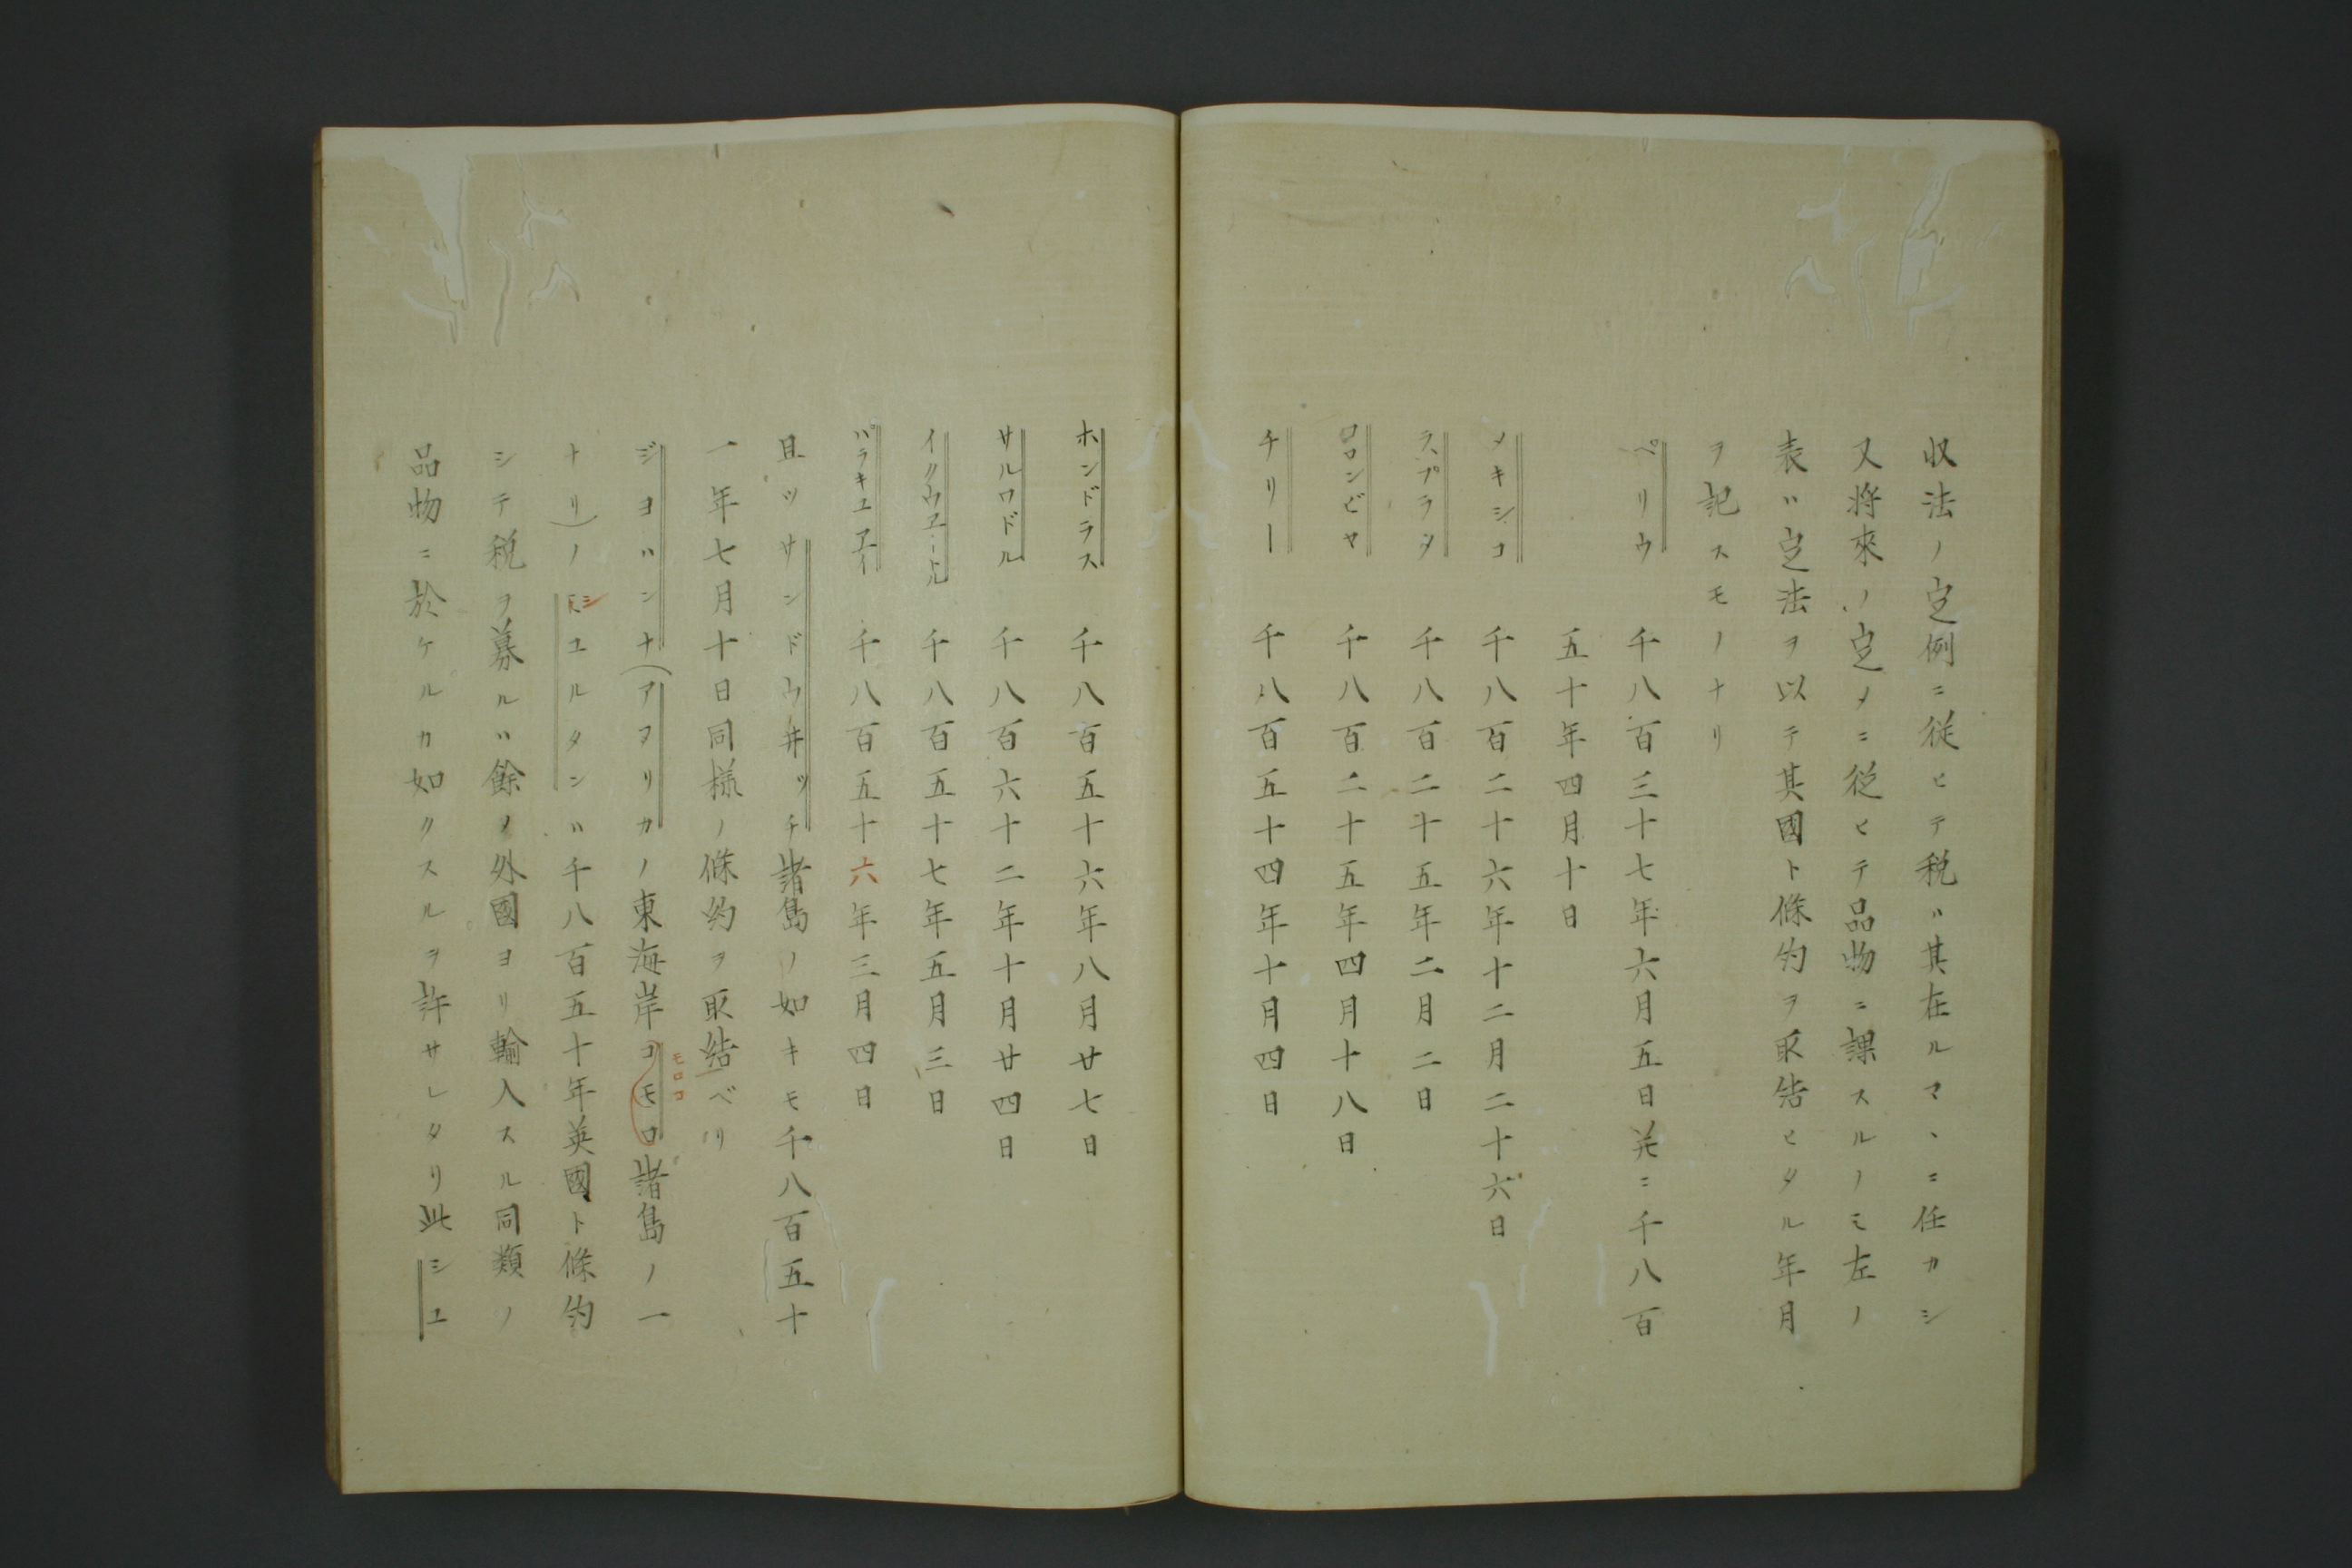 収法ノ定例ニ従ヒテ税ハ其在ルマヽニ任カシ
又将來ノ定メニ従ヒテ品物ニ課スルノミ左ノ
表ハ定法ヲ以テ其國ト條約ヲ取结ヒタル年月
ヲ記スモノナリ
ペリウ 千八百三十七年六月五日并ニ千八百
五十年四月十日
メキシコ 千八百二十六年十二月二十六日
ラプラタ 千八百二十五年二月二日
コロンビヤ 千八百二十五年四月十八日
チリー 千八百五十四年十月四日
ホンドラス 千八百五十六年八月廿七日
サルワドル 千八百六十二年十月廿四日
イクウエートル 千八百五十七年五月三日
パラキユアイ 千八百五十六年三月四日
且ツサンドウ井ッチ諸島ノ如キモ千八百五十
一年七月十日同様ノ條約ヲ取結ベリ
ジヨハンナ(アフリカノ東海岸コモロ諸島ノ一
モロコ
ナリ)ノシユルタンハ千八百五十年英國ト條約
シテ税ヲ募ルハ餘ノ外國ヨリ輸入スル同類ノ
品物ニ於ケルカ如クスルヲ許サレタリ此シユ